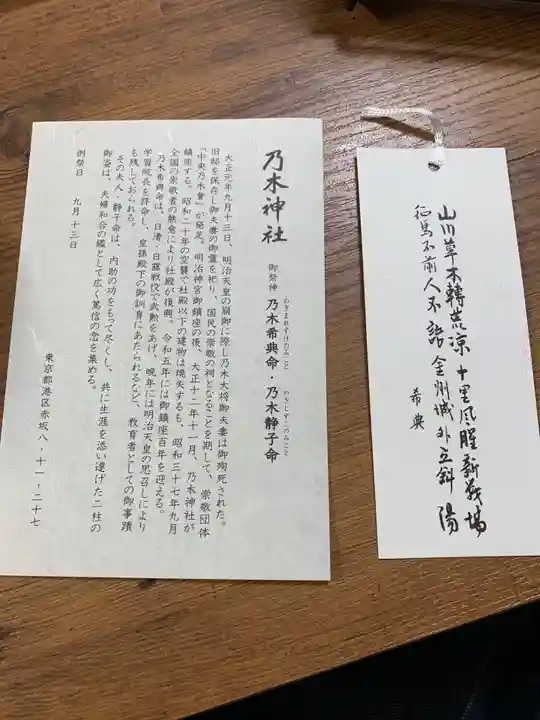 乃木神社
御祭神 乃木希典命・乃木静子命
のぎまれすけのみこと
のぎしずこのみこと
大正元年九月十三日、明治天皇の崩御に際し乃木大将御夫妻は御殉死された。
旧邸を保存し御夫妻の御霊を祀り、国民の崇敬の祠となることを期して、崇敬団体
「中央乃木會」が発足。明治神宮御鎮座の後、大正十二年十一月、乃木神社が
鎮座する。昭和二十年の空襲で社殿以下の建物は焼失するも、昭和三十七年九月
全国の崇敬者の熱意により社殿が復興。令和五年には御鎮座百年を迎える。
乃木希典命は、日清・日露戦役で武勲をあげ、晩年には明治天皇の思召しにより
学習院長を拝命し、皇孫殿下の御訓育にあたられるなど、教育者としての御事蹟
も残しておられる。
その夫人、静子命は、内助の功をもって尽くし、共に生涯を添い遂げた二柱の
御姿は、夫婦和合の鑑として広く篤信の念を集める。
例祭日 九月十三日
東京都港区赤坂八・十一・二十七
山川草木轉荒涼 十里風腥新戦場
征馬不前人不語 金州城外立斜陽
希典